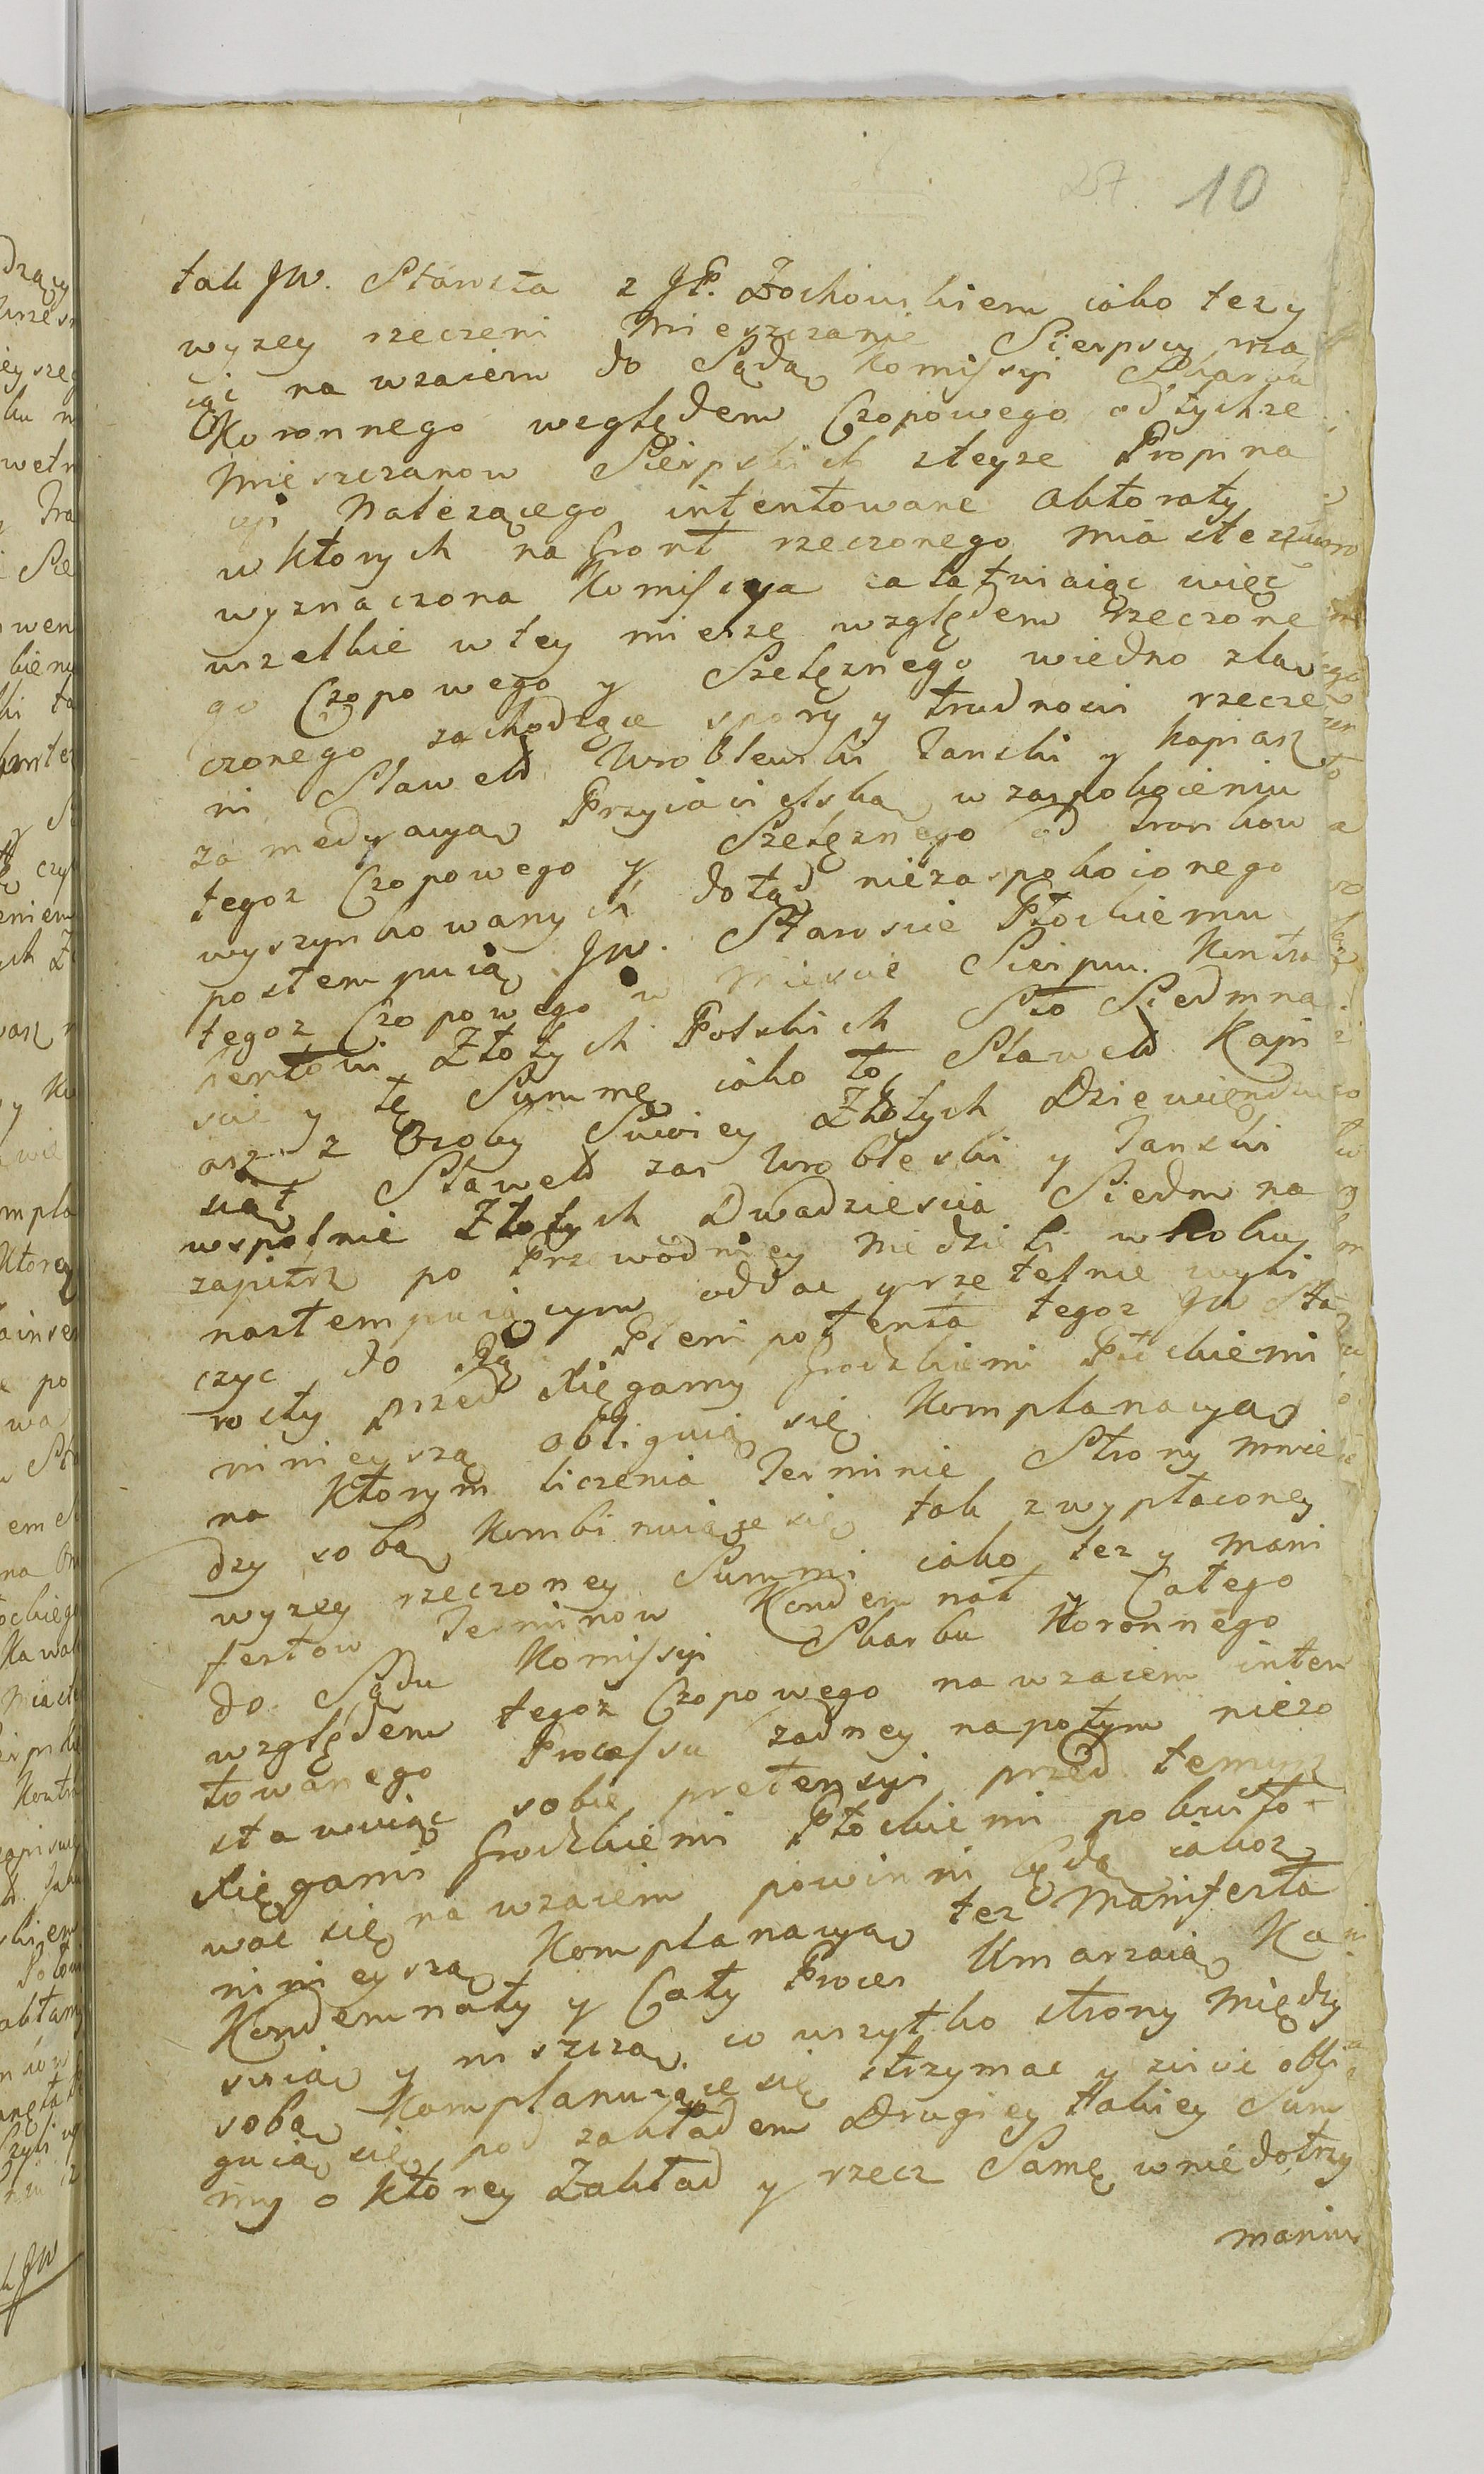 257. 10
tak JW. Starosta z JP. Żochowskiem iako tez y
wyzey rzeczeni Mieszczanie Sierpscy ma
iąc na wzaiem do Sądu Komissyi Skarbu
Koronnego węględem Czopowego od tychze
Mieszczanow Sierpskich zteyze Propina
cyi Nalezącego intentowane Aktoraty
w ktorych na Gront rzeczonego Miasteczka
wyznaczona Komissya załatwiaiąc więc
wszelkie w tey mierze względem rzeczone
go Czopowego y Szelęznego wiedno złą
czonego zachodzące spory y trudnosci rzecze
ni Sławetd Wroblewski Janski y Kapiasz
za medyacyą Przyiacielską w zaspokoieniu
tegoz Czopowego y Szelęznego od trunkow
wyszynkowanych dotąd niezaspokoionego
postempuią JW. Staroscie Płockiemu
tegoz Czopowego w Miescie Sierpcu Kontra
hentowi Złotych Polskich Sto Siedmna
scie y tę Summę iako to Sławetd Kapi
asz z Osoby Swoiey Złotych Dziewiendzie
siąt Sławetd zas Wrobleski y Janski
wspolnie Złotych Dwadziescia Siedm na
zaiutrz po Przewodniey Niedzieli w Roku
nastempuiącym oddac y rzetelnie wyli
czyc do rą Plenipotenta tegoz JW Sta
rosty przed Xięgamy Grodzkiemi Płockiemi
ninieyszą obliguią się Komplanacyą
na ktorym liczenia Terminie Strony mnie
dzy sobą Kombinuiące się tak z wypłaconey
wyzey rzeczoney Summi iako tez y Mani
festow Terminow Kondemnat y Całego
do Sądu Komissyi Skarbu Koronnego
względem tegoz Czopowego na wzaiem inten
towanego Processu zadney napotym niezo
stawuiąc sobie pretensyi przed temisz
Xięgami Grodzkiemi Płockiemi pokwito
wac się na wzaiem powinni będą iakoz
ninieyszą Komplanacyą tez Manifesta
Kondemnaty y Cały Proces Umarzaią Ka
suią y niszczą co wszytko strony Między
sobą Komplanuiące się strzymac y ziscic obli
guią się pod zakładem Drugiey takiey Sum
my o ktorey Zakład y rzecz Samę w niedotrzy
maniu